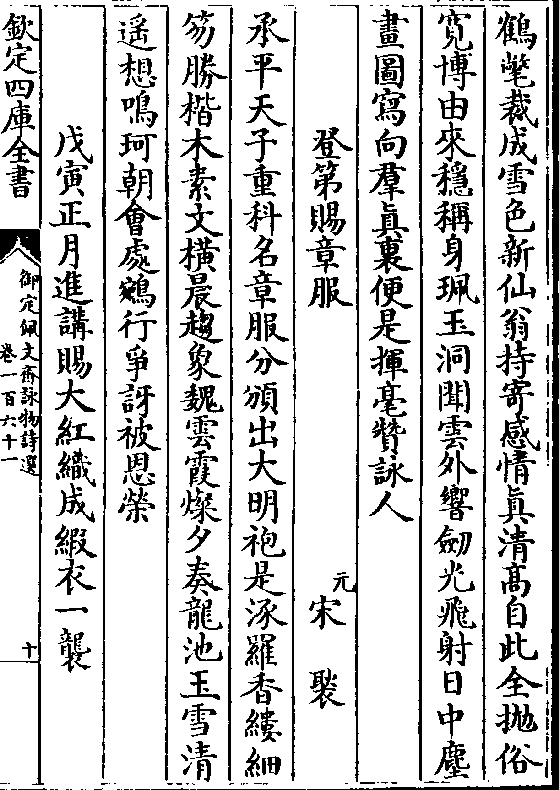 鶴氅裁成雪色新仙翁持寄感情眞清髙自此全抛俗
寛博由來穩稱身珮玉洞聞雲外響劒光飛射日中塵
畫圖寫向羣眞裏便是揮毫贊詠人
登第賜章服
元宋褧
承平天子重科名章服分頒出大明袍是涿羅香縷細
笏勝楷木素文横晨趨象魏雲霞燦夕奏龍池玉雪清
遥想鳴珂朝會處鵷行爭訝被恩榮
戊寅正月進講賜大紅織成緞衣一襲
欽定四庫全書
御定佩文齋詠物詩選
卷一百六十一
十